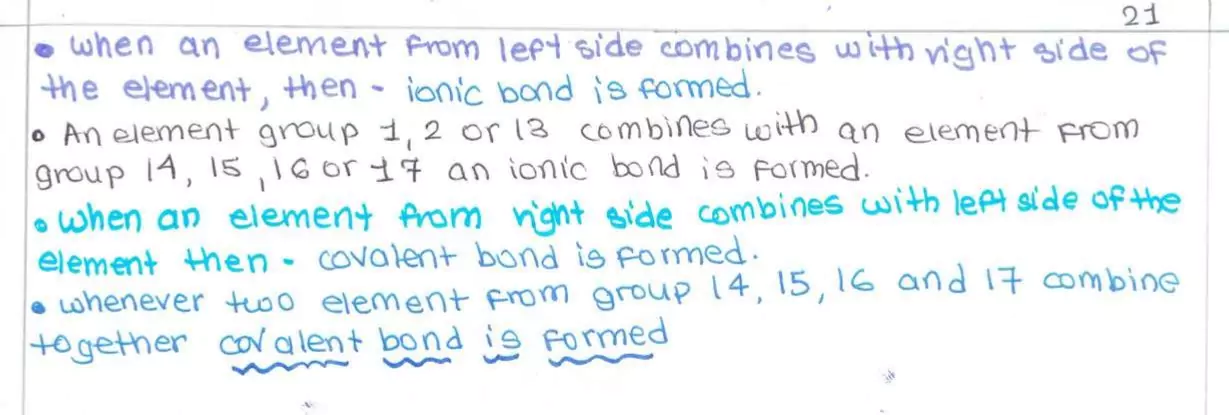 21
• when an element from left side combines with right side of
the element, then - ionic bond is formed.
• An element group 1, 2 or 13 combines with an element from
group 14, 15, 16 or 17 an ionic bond is formed.
• when an element from right side combines with left side of the
element then - covalent bond is formed.
• whenever two element from group 14, 15, 16 and 17 combine
together covalent bond is formed